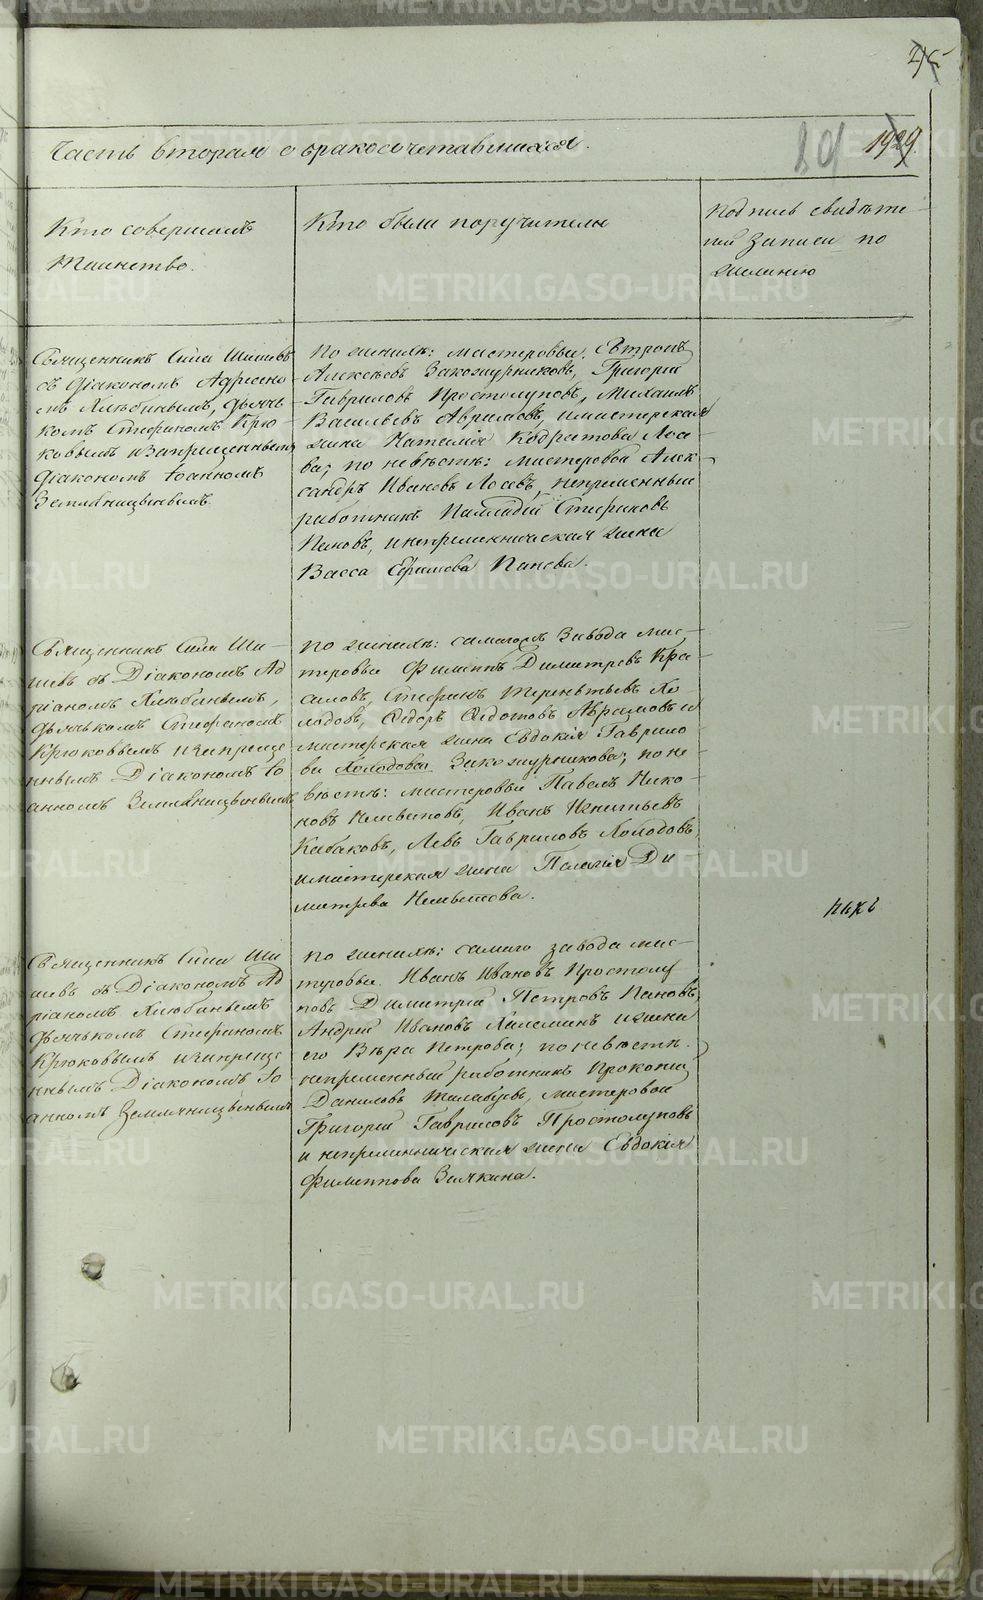 Часть вторая о бракосочетавшихся.
1929.
Кто совершалъ
таинство.
Кто были поручители
Подпись свидѣте-
лей записи по
желанію
Священникъ Сила Шишевъ
съ Діакономъ Адріано-
мъ Хлюбинымъ, дьячь-
комъ Стефаномъ Крю-
ковымъ и запрещеннымъ
Діакономъ Іоанномъ
Земляницынымъ.
По женихѣ: мастеровые,
Алексѣевъ Закожурниковъ, Григорій
Гавриловъ Простолуповъ, Михаилъ
Васильевъ Аврамовъ, и мастерская
жена Наталія Кодратова Лосе-
ва; по невѣстѣ: мастеровой Алек-
сандръ Ивановъ Лосевъ, непременный
работникъ Палладій Стефановъ
Пановъ, и непременническая жена
Васса Ефимова Панова.
Священникъ Сила Ши-
шевъ съ Діакономъ Ад-
ріаномъ Хлюбинымъ,
дьячькомъ Стефаномъ
Крюковымъ и запреще
ннымъ Діакономъ Іо
анномъ Земляницынымъ
По женихѣ: самаго Завода мас-
теровые Филипъ Димитревъ Кра-
силовъ, Стефанъ Терентьевъ Хо
лодовъ, Ѳедоръ Ѳедотовъ Аврамовъ и
мастерская жена Евдокія Гаврило
ва Холодова Закожурникова; по не
вѣстѣ: мастеровые Павелъ Нико-
новъ Иванъ Игнатьевъ
Кабаковъ, Левъ Гавриловъ Холодовъ,
и мастерская жена Палагія Ди
митрева
Священникъ Сила Ши
шевъ съ Діакономъ Ад
ріаномъ Хлюбинымъ
дьячькомъ Стефаномъ
Крюковымъ и запреще
ннымъ Діакономъ Іо
анномъ Земляницынымъ
По женихѣ: самаго завода мас-
теровые Иванъ Ивановъ Простолу
повъ Димитрій Петровъ Пановъ,
Андрей Ивановъ и жена
его Вѣра Петрова; по невѣстѣ:
непременный работникъ Прокопій
Даниловъ мастеровой
Григорій Гавриловъ Простолуповъ
и непременническая жена Евдокія
Филиппова Заякина.
METRIKI.GASO-URAL.RU